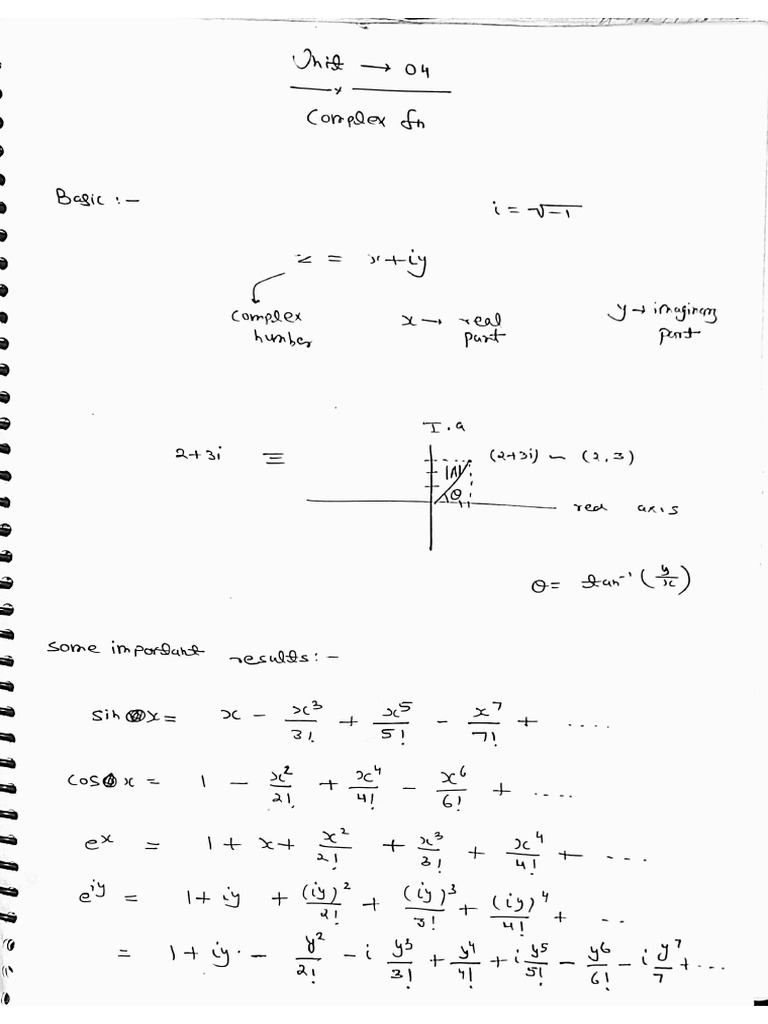 Unit → 04
Complex fn
Basic :- i = √-1
z = x+iy
complex number x → real part y → imaginary part
I.a
2+3i ≡ (2+3i) ~ (2,3)
|A|
θ
real axis
θ = tan⁻¹(y/x)
some important results:-
sin x = x - x³/3! + x⁵/5! - x⁷/7! + ....
cos x = 1 - x²/2! + x⁴/4! - x⁶/6! + ....
eˣ = 1 + x + x²/2! + x³/3! + x⁴/4! + ...
e^{iy} = 1 + iy + (iy)²/2! + (iy)³/3! + (iy)⁴/4! + ..
= 1 + iy - y²/2! - i y³/3! + y⁴/4! + i y⁵/5! - y⁶/6! - i y⁷/7 + ...